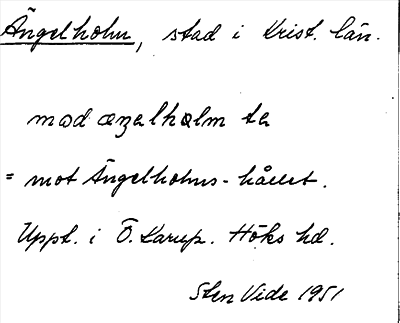 Ängelholm, stad i Krist. län.
mod æŋəlhəlm tə
= mot Ängelholms-hållet.
Uppt. i Ö. Karup. Höks hd.
Sten Vide 1951